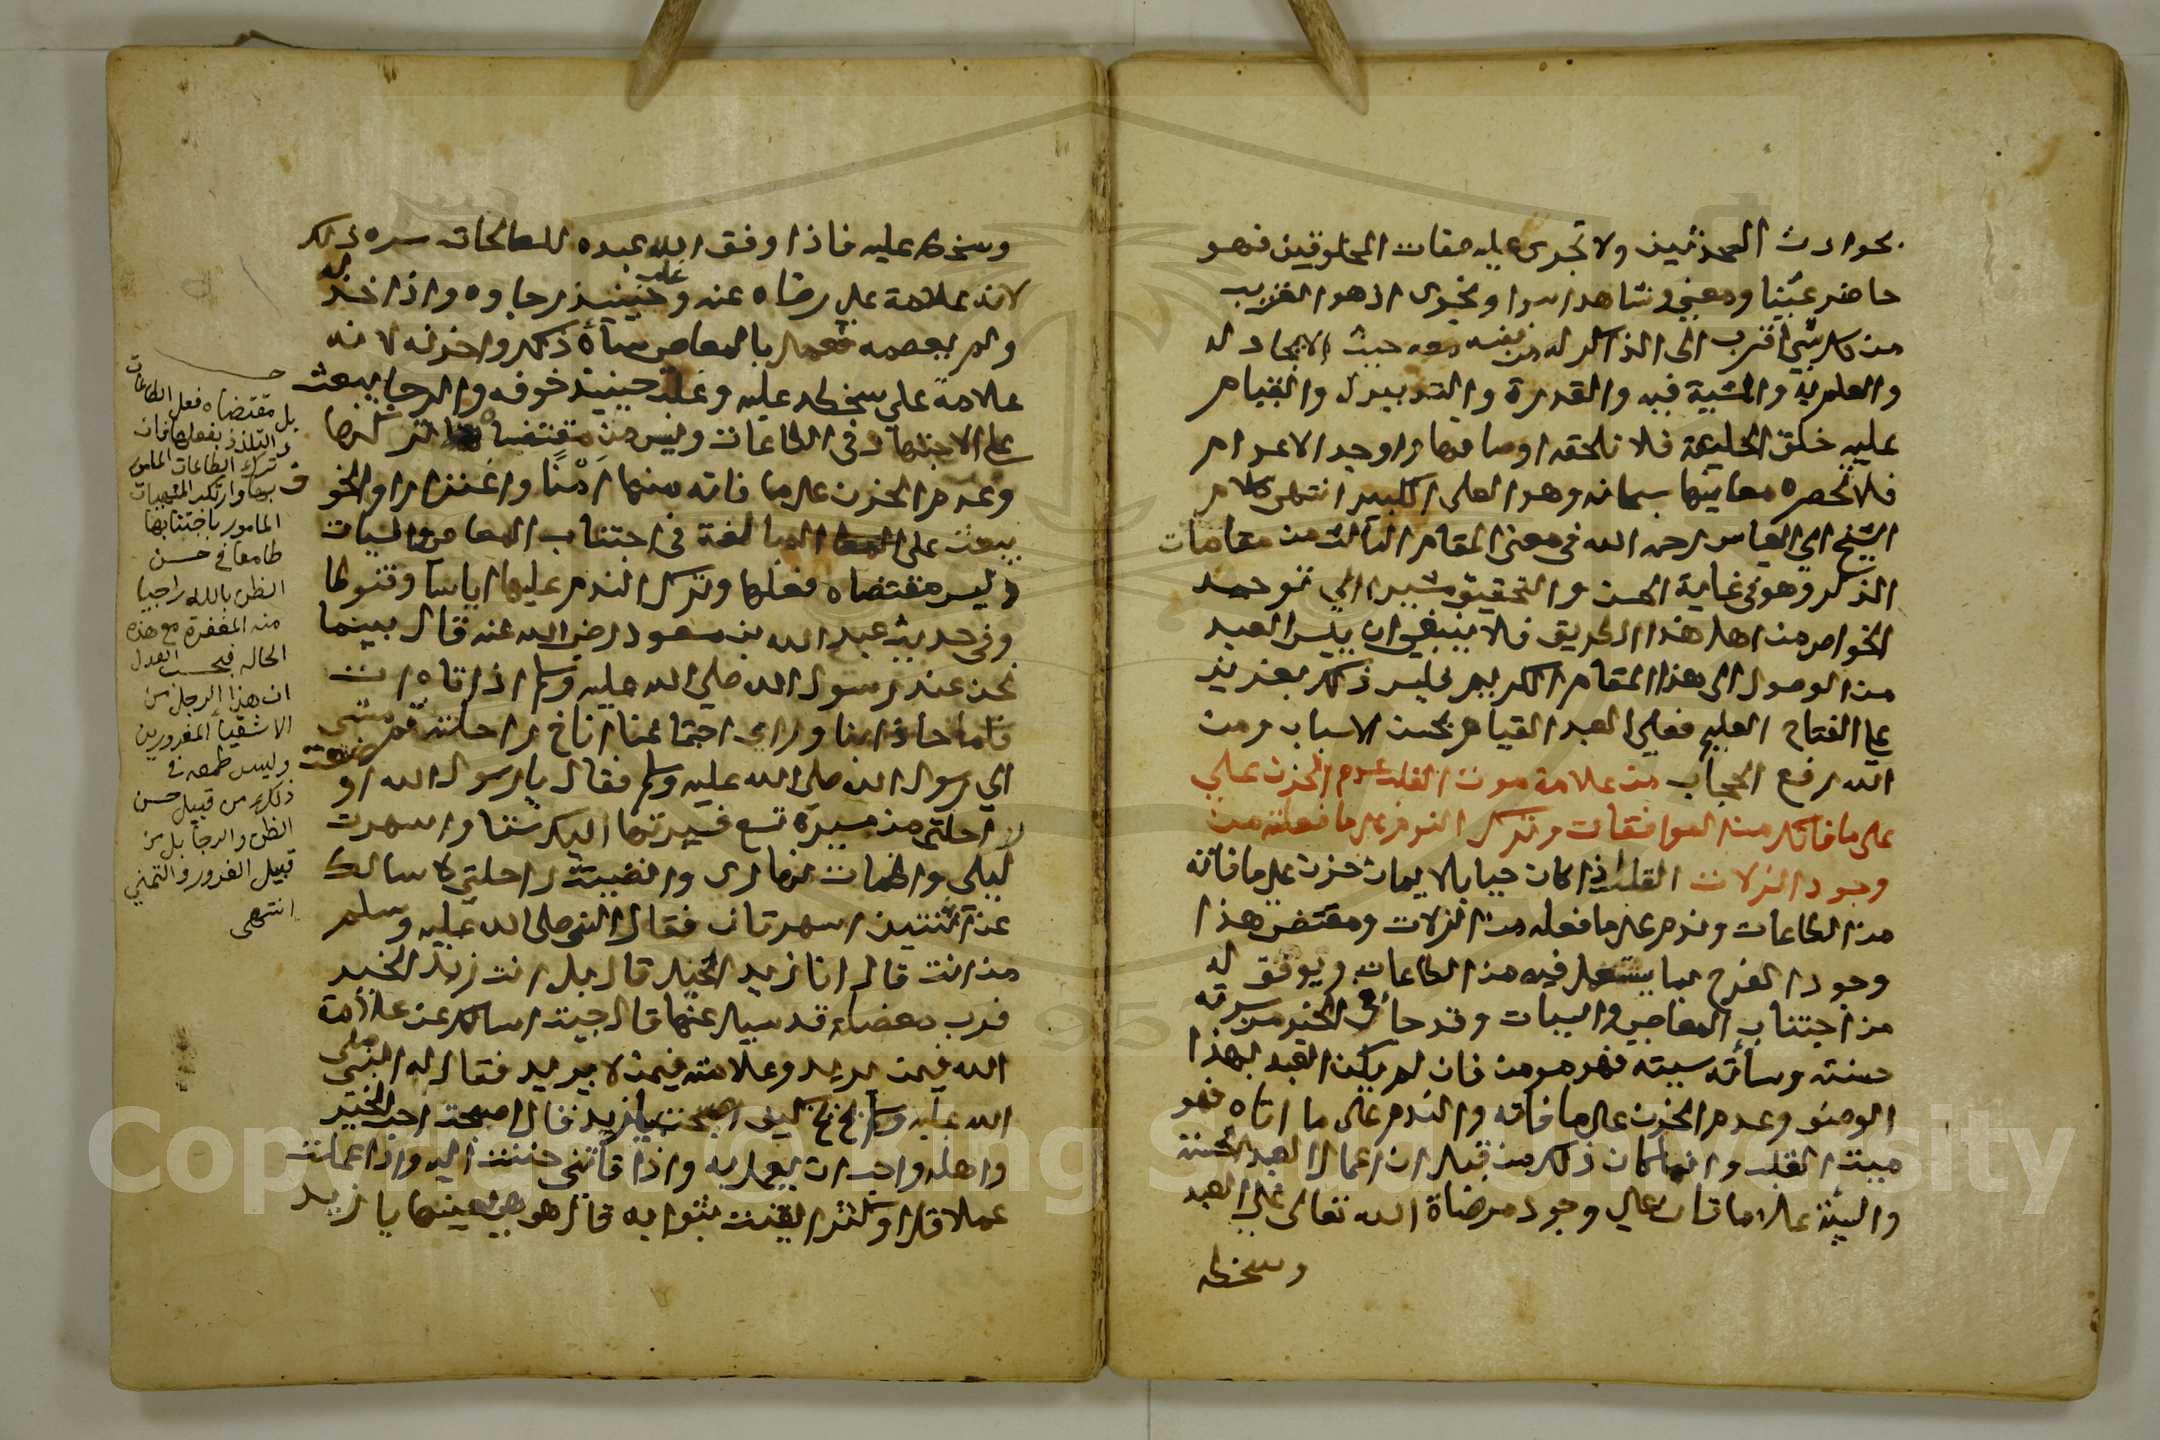 بحوادث المحدثين ولا تجرى عليه صفات المخلوقين فهو
حاضر عينا ومعنى وشاهد سرا ونجوى اذ هو القريب
من كل شي اقرب الى الذاكر له من نفسه من حيث الايجاد له
والعلم به والمشية فيه والقدرة والتدبير له والقيام
عليه خلق الخليقة فلا تلحقه اوصافها واوجد الاعداد
فلا تحصره معانيها سبحانه وهو العلى الكبير انتهى كلام
الشيخ ابي العباس رحمه الله فى معنى المقام الثالث من مقامات
الذكر وهو فى غاية الحسن والتحقيق مشيرا الي توحيد
الخواص من اهل هذا الطريق فلا ينبغي ان يياس العبد
من الوصول الى هذا المقام الكريم فليس ذكر بعزيز
على الفتاح العليم فعلي العبد القيام بحسن الاسباب ومن
الله رفع الحجاب من علامة موت القلب عدم الحزن علي
على ما فاتك من الموافقات وترك الندم على ما فعلته من
وجود الزلات القلب اذا كان حيا بالايمان حزن على ما فاته
من الطاعات وندم على ما فعله من الزلات ومقتضى هذا
وجود الفرح بما يستعمل فيه من الطاعات ويوفق له
من اجتناب المعاصي والسيات وقد جا فى الخبر من سرته
حسنته وساته سيته فهو مومن فان لم يكن العبد بهذا
الوصف وعدم الحزن على ما فاته والندم على ما اتاه فهو
ميت القلب وانما كان ذكر من قبل ان اعمال العبد الحسنة
والسيئة علامتان على وجود مرضاة الله تعالى على العبد
وسخطه
وسخطه عليه فاذا وفق الله عبده للصالحات سره ذلك
لانه علامة على رضاه عنه وغلب حينيذ رجاوه واذا خذله
ولم يعصمه فعمل بالمعاصى ساءه ذكر واحزنه لانه
علامة علي سخطه عليه وغلب حينيذ خوفه والرجا يبعث
على الاجتهاد فى الطاعات وليس من مقتضاه تركها
وعدم الحزن على ما فاته منها امنا واغترارا والخوف
يبعث على المبالغة فى اجتناب المعاصى والسيات
وليس مقتضاه فعلها وترك الندم عليها اياسا وقنوطا
وفى حديث عبد الله بن مسعود رضى الله عنه قال بينما
نحن عند رسول الله صلى الله عليه وسلم اذ اتاه ات
فلما حاذانا وراى اجتماعنا اناخ راحلته ثم مشى
اي رسول الله صلى الله عليه وسلم فقال يا رسول الله اوضعت
راحلتى من مسيرة تسع فسيرتها اليك ستا واسهرت
ليلى واظمات نهارى وانضيت راحلتى لاسالك
عن اثنتين اسهرتانى فقال النبى صلى الله عليه وسلم
من انت قال انا زيد الخيل قال بل انت زيد الخير
فرب معضلة قد سيل عنها قال جيت اسالك عن علامة
الله فيمن يريد وعلامته فيمن لا يريد فقال له النبى صلى
الله عليه وسلم بخ بخ كيف اصبحت يا زيد قال اصبحت احب الخير
واهله واحب ان يعمل به واذا فاتنى حننت اليه واذا عملت
عملا قل او كثر ايقنت بثوابه قال هو هى بعينها يا زيد
بل مقتضاه فعل الطاعات
و التلذذ بفعلها فان
ترك الطاعات المامور
بها وارتكب المنهيات
المامور باجتنابها
طامعا في حسن
الظن بالله راجيا
منه المغفرة مع هذه
الحالة فيحسب العدل
ان هذا الرجل من
الاشقيا المغرورين
وليس طمعه في
ذلك من قبيل حسن
الظن والرجا بل من
قبيل الغرور والتمني
انتهى
Copyright © King Saud University